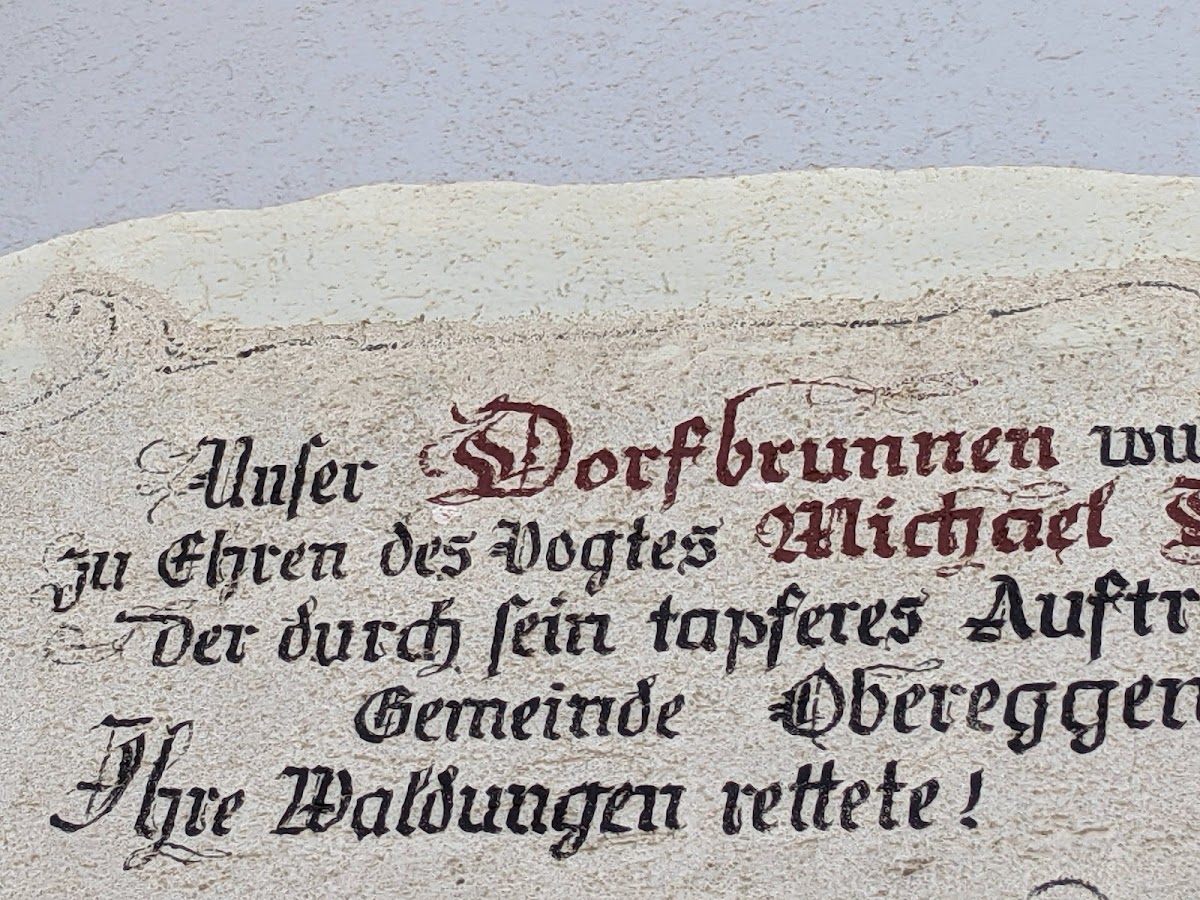 Unser Dorfbrunnen wu
zu Ehren des Vogtes Michael
Der durch sein tapferes Auftr
Gemeinde Obereggen
Ihre Waldungen rettete!